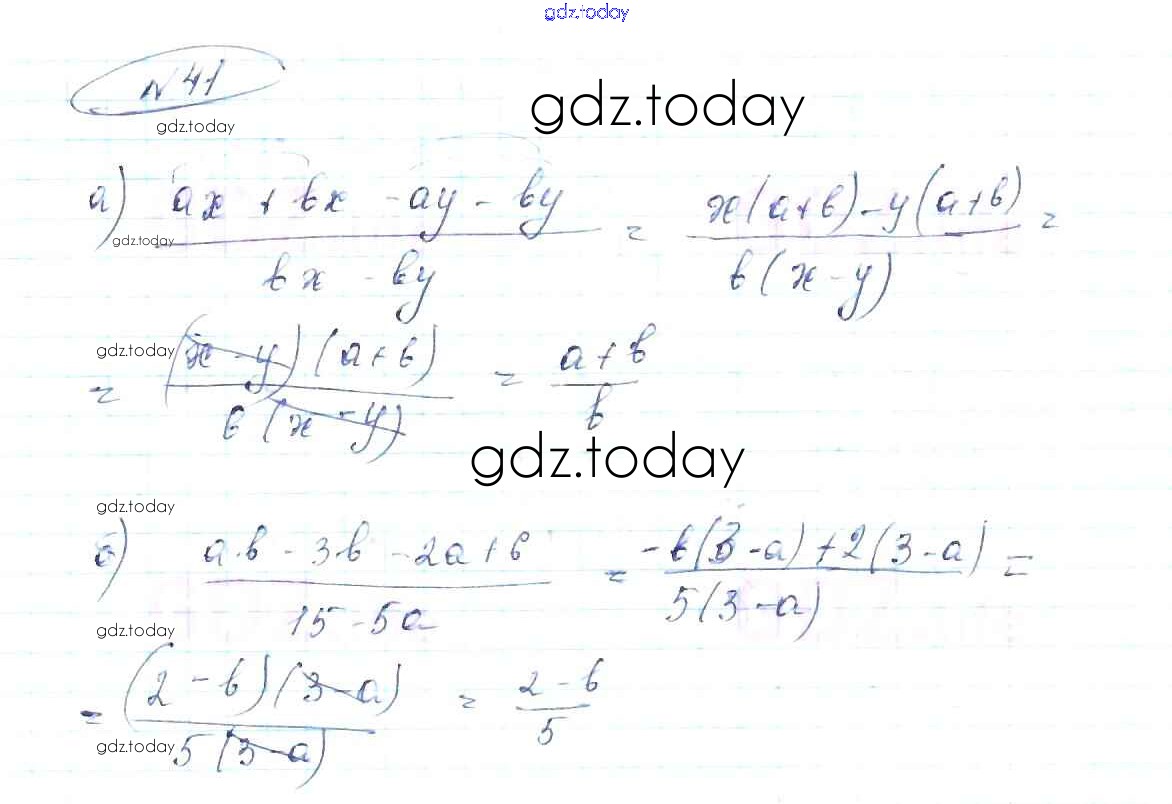 gdz.today
№ 41
gdz.today
gdz.today
а) (ax + bx - ay - by)/(bx - by) = (x(a+b) - y(a+b))/(b(x-y)) =
gdz.today
= ((x-y)(a+b))/(b(x-y)) = (a+b)/b
gdz.today
gdz.today
gdz.today
б) (ab - 3b - 2a + 6)/(15 - 5a) = (-b(3-a) + 2(3-a))/(5(3-a)) =
gdz.today
= ((2-b)(3-a))/(5(3-a)) = (2-b)/5
gdz.today